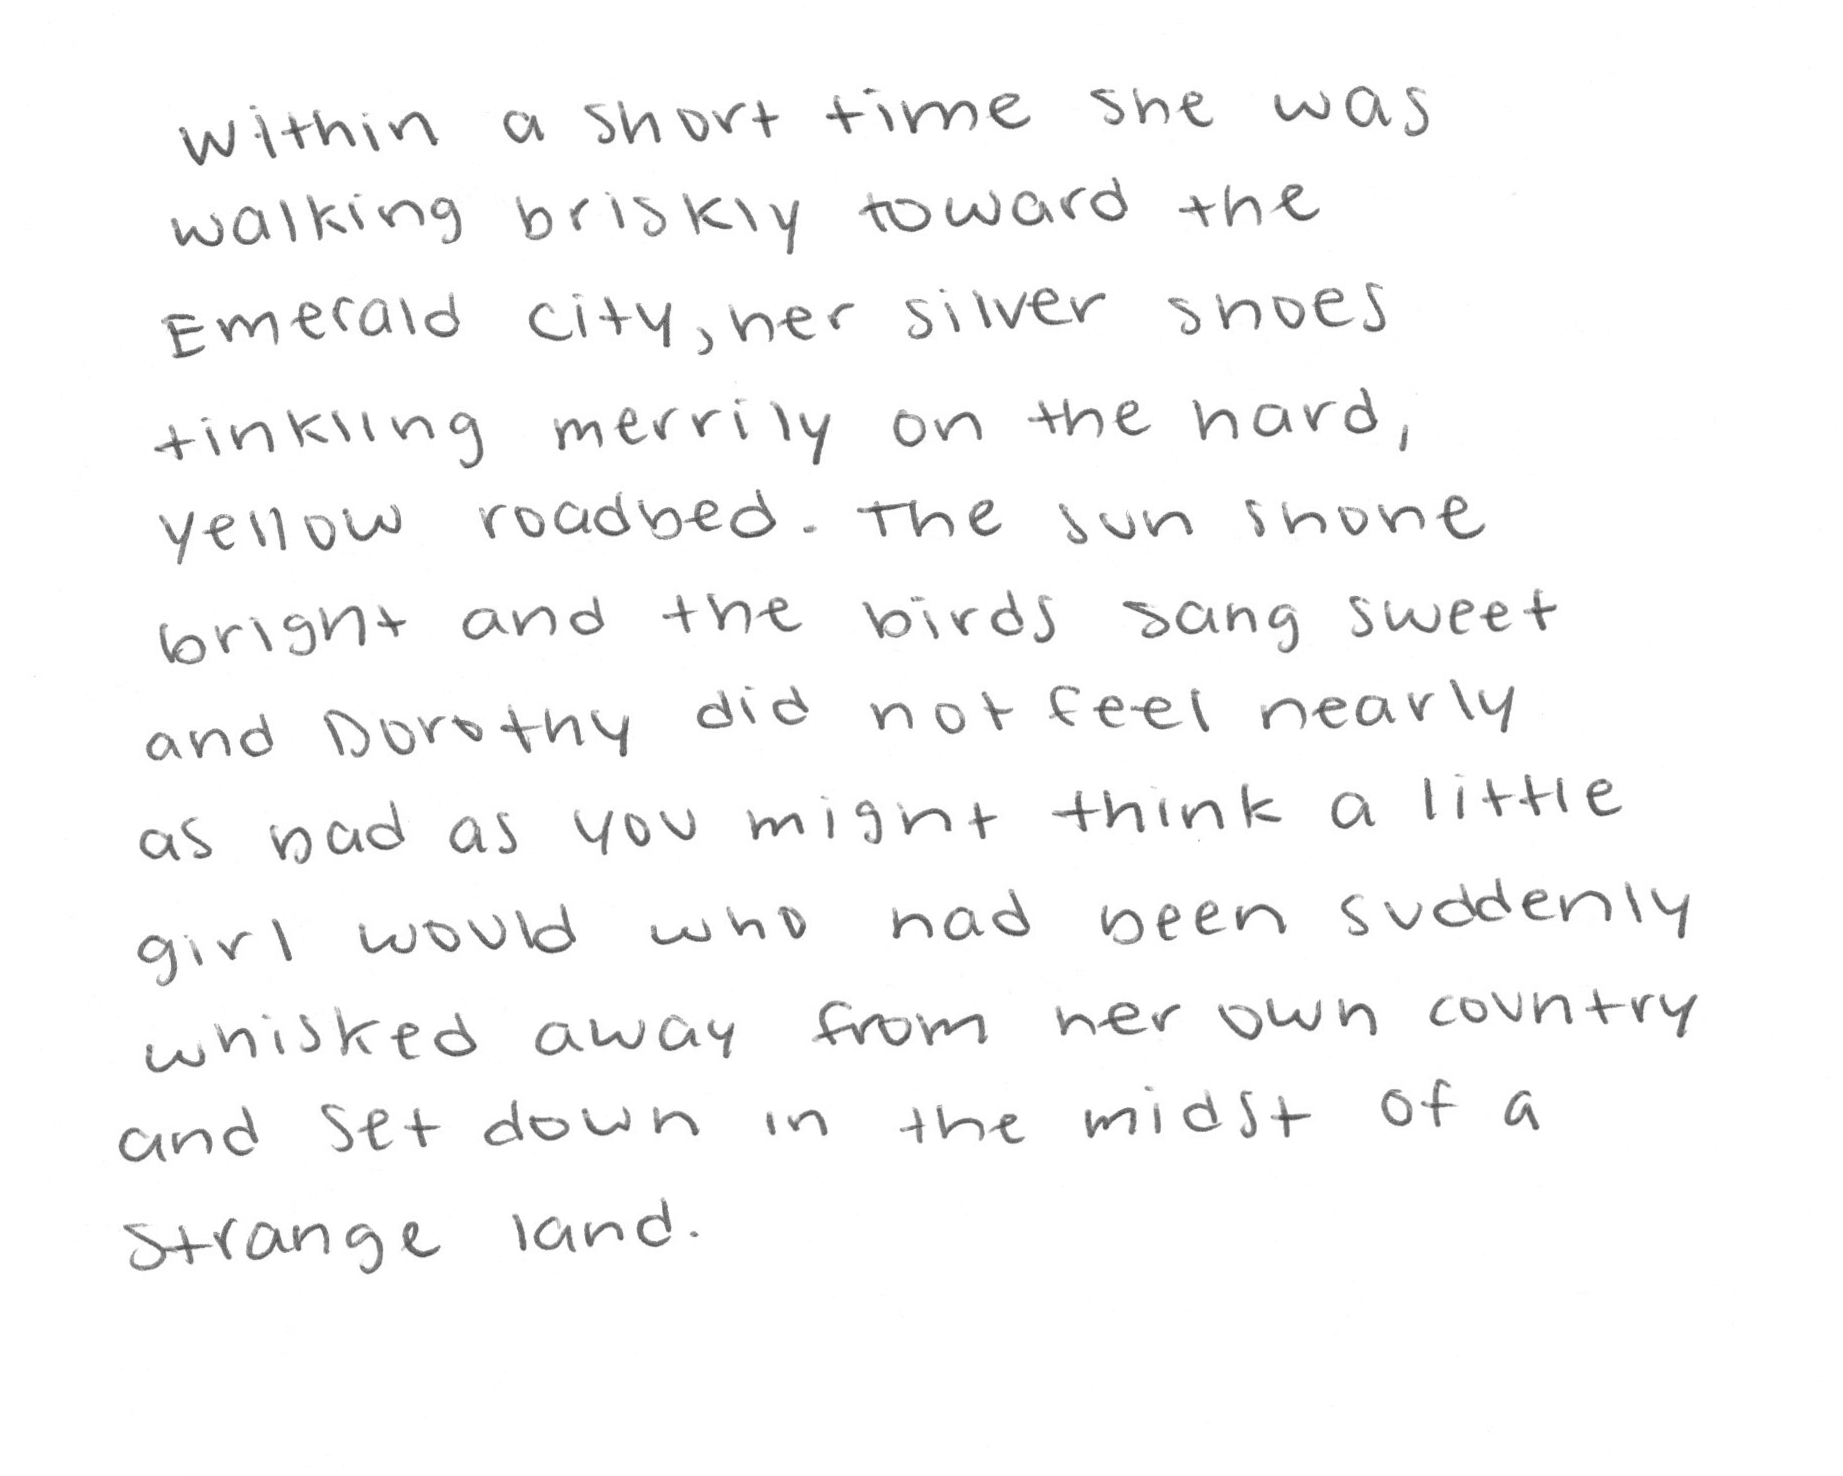 Within a short time she was
walking briskly toward the
Emerald City, her silver shoes
tinkling merrily on the hard,
yellow roadbed. The sun shone
bright and the birds sang sweet
and Dorothy did not feel nearly
as bad as you might think a little
girl would who had been suddenly
whisked away from her own country
and set down in the midst of a
strange land.